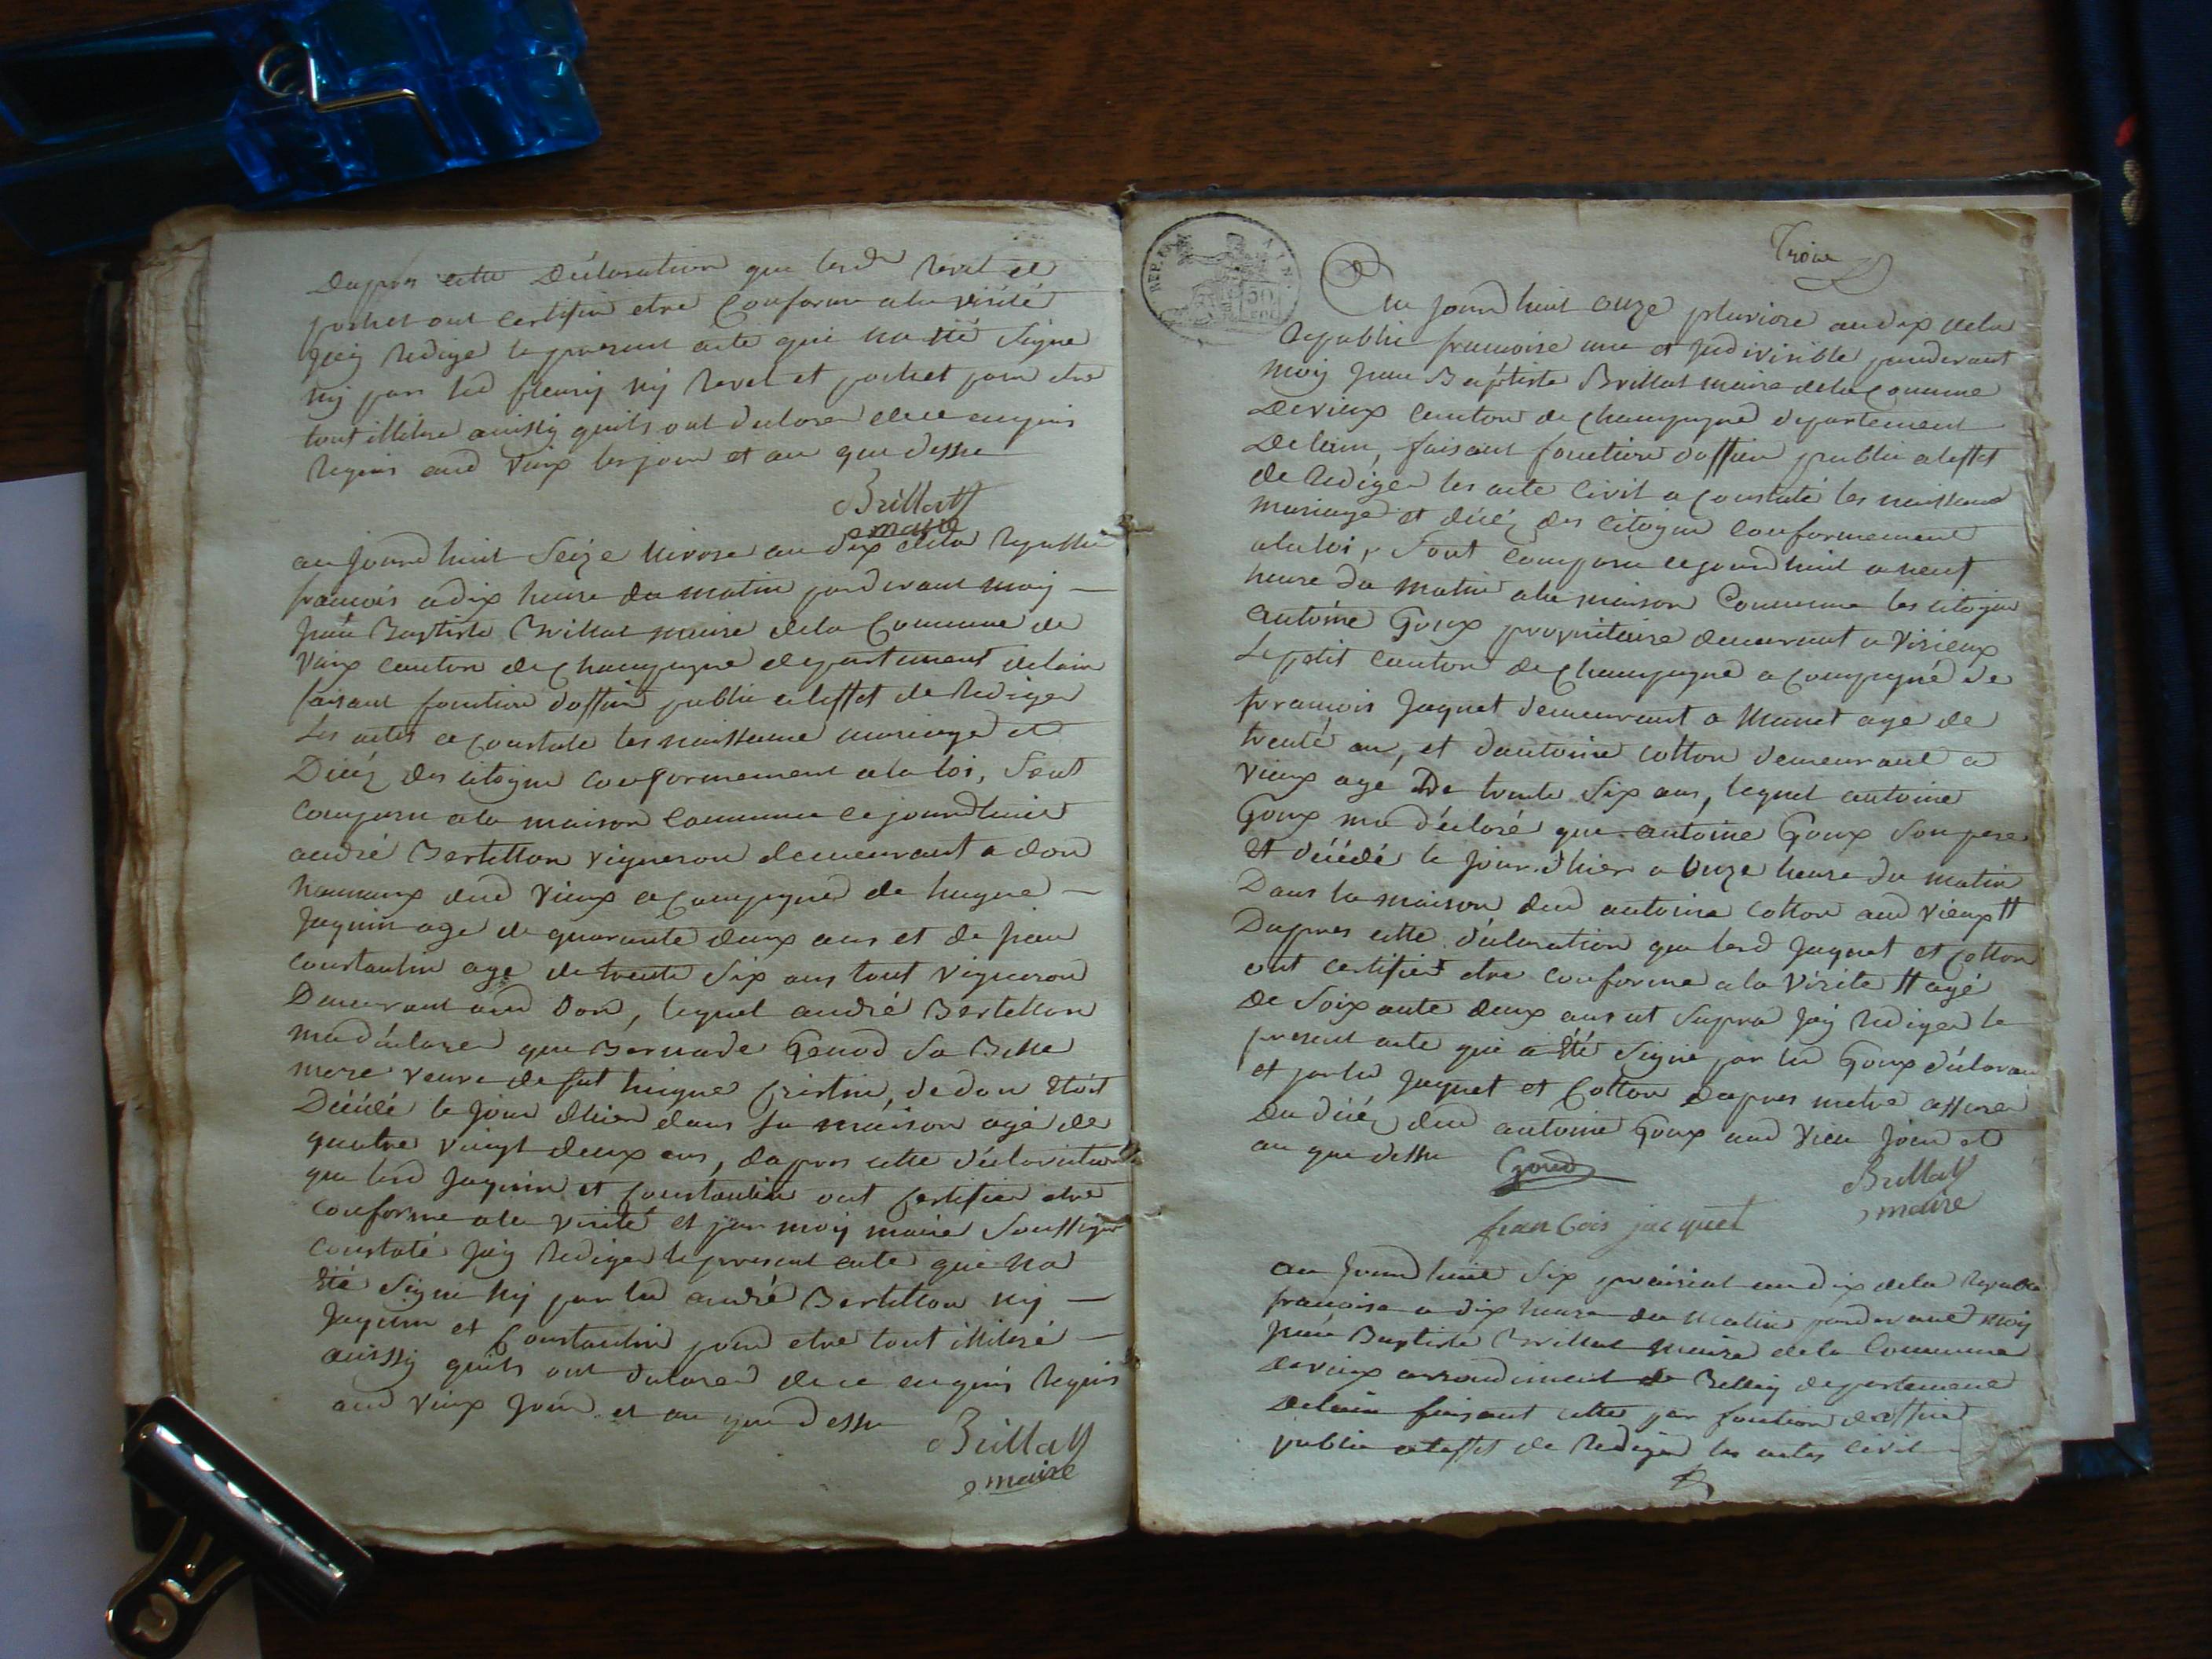 Dapres cette Declaration que lesd Revel et
pochet ont certifier etre Conforme ala vérité
Jaÿ Redigé le present acte qui na été Signe
nÿ par led fleurÿ nÿ Revel et pochet pour etre
tout illitere ainssÿ quils ont declarer de ce enquis
Requis aud Vieux les jour et an que dessu
Brillat
maire
au Jourd huit Seize Nivose an dix dela Republi
francois a dix heure du matin pardevant moÿ —
Jean Baptiste Brillat maire dela Commune de
Vieux canton de Champagne departement delain
faisant fonction doffier public aleffet de Rediger
Les actes a Constate les naissance mariage et
Décéz des citoÿen conformement ala loi, Sont
Comparu ala maison Commune cejourdhuit
andré Bertetton Vigneron demeurant a don
hammaux dud Vieux acCompagne de hugue —
Jaquin age de quarante deux ans et de jean
Constantin age de trente Six ans tout Vigneron
Demeurant aud Don, lequel andré Bertetton
ma déclarer que Bernade Genod Sa Belle
mere veuve de fut hugue Cristin, de don Etoit
Décédé le jour dhier dans Sa maison agé de
quatre vingt deux ans, dapres cette déclaration
que lesd Jaquin et Constantin ont Certifier etre
Conforme ala vérité et par moÿ maire Soussigne
Constaté Jaÿ Rediger le present acte qui na
été Signe nÿ par led andré Bertetton nÿ —
Jaquin et Constantin pour etre tout illiteré —
ainssÿ quils ont declarer de ce enquis Requis
aud Vieux Jour et an que dessu
Brillat
maire
REP. FRA
AIN
50
CENT
Troise
Au jourd huit onze pluviose an dix dela
Republi francoise une et Jndivisible pardevant
moÿ Jean Baptiste Brillat maire dela Commune
De vieux Canton de Champagne departement
De lain, faisant fonction doffier public aleffet
de Rediger les acte Civil a Constaté les naissance
mariage et décéz des Citoyen Conformement
ala loi, Sont Comparu cejourdhuit a neuf
heure du matin ala maison Commune les citoÿen
antoine Goux propriétaire demeurant a Virieux
Le petit Canton de Champagne acCompagné de
francois Jaquet demeurant a Munet age de
trenté an, et dantoine Cotton demeurant a
Vieux agé De trente Six ans, lequel antoine
Goux ma déclaré que antoine Goux Son pere
Et décédé le jour dhier a Onze heure du matin
Dans la maison dud antoine Cotton aud Vieux #
Dapres cette déclaration que lesd Jaquet et Cotton
ont certifier etre Conforme ala Vérité # agé
de Soixante deux ans ut Supra Jaÿ Rediger le
present acte qui a été Signe par led Goux déclaran
et par led Jaquet et Cotton dapres metre assurer
Du décéz dud antoine Goux aud Vieu Jour et
an que dessu
Goux
Brillat
maire
francois jacquet
au Jourd huit Six prairial an dix dela Republi
francoise a dix heure du matin pardevant moÿ
Jean Baptiste Brillat maire dela Commune
De vieux arrondiment de Belleÿ departement
Delain faisant cette par fonction doffier
public aleffet de Rediger les actes Civil